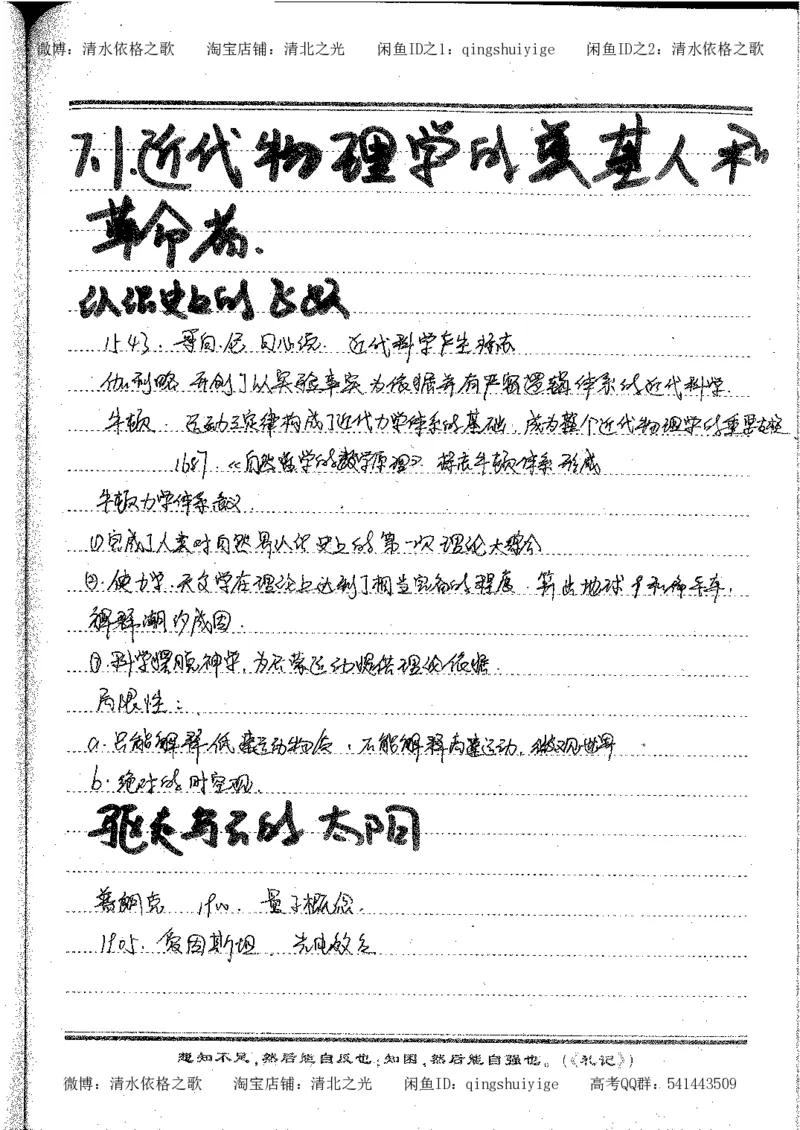 微博：清水依格之歌 淘宝店铺：清北之光 闲鱼ID之1：qingshuiyige 闲鱼ID之2：清水依格之歌
7.1.近代物理学的奠基人和
革命者.
认识史上的飞跃
1543. 哥白尼 日心说. 近代科学产生标志
伽利略 开创了以实验事实为依据并有严密逻辑体系的近代科学.
牛顿. 运动三定律构成了近代力学体系的基础，成为整个近代物理学的重要支柱
1687.《自然哲学的数学原理》标志牛顿体系形成
牛顿力学体系意义.
①完成了人类对自然界认识史上的第一次理论大综合
②.使力学.天文学在理论上达到了相当完备的程度.算出地球
解释潮汐成因.
③.科学摆脱神学,为启蒙运动提供理论依据.
局限性：.
a.只能解释低速运动物体，不能解释高速运动，微观世界
b.绝对的时空观.
驱走乌云的太阳
普朗克 1900. 量子概念.
1905. 爱因斯坦. 光电效应
想知不足,然后能自反也;知困,然后能自强也。(《礼记》)
微博：清水依格之歌 淘宝店铺：清北之光 闲鱼ID：qingshuiyige 高考QQ群：541443509